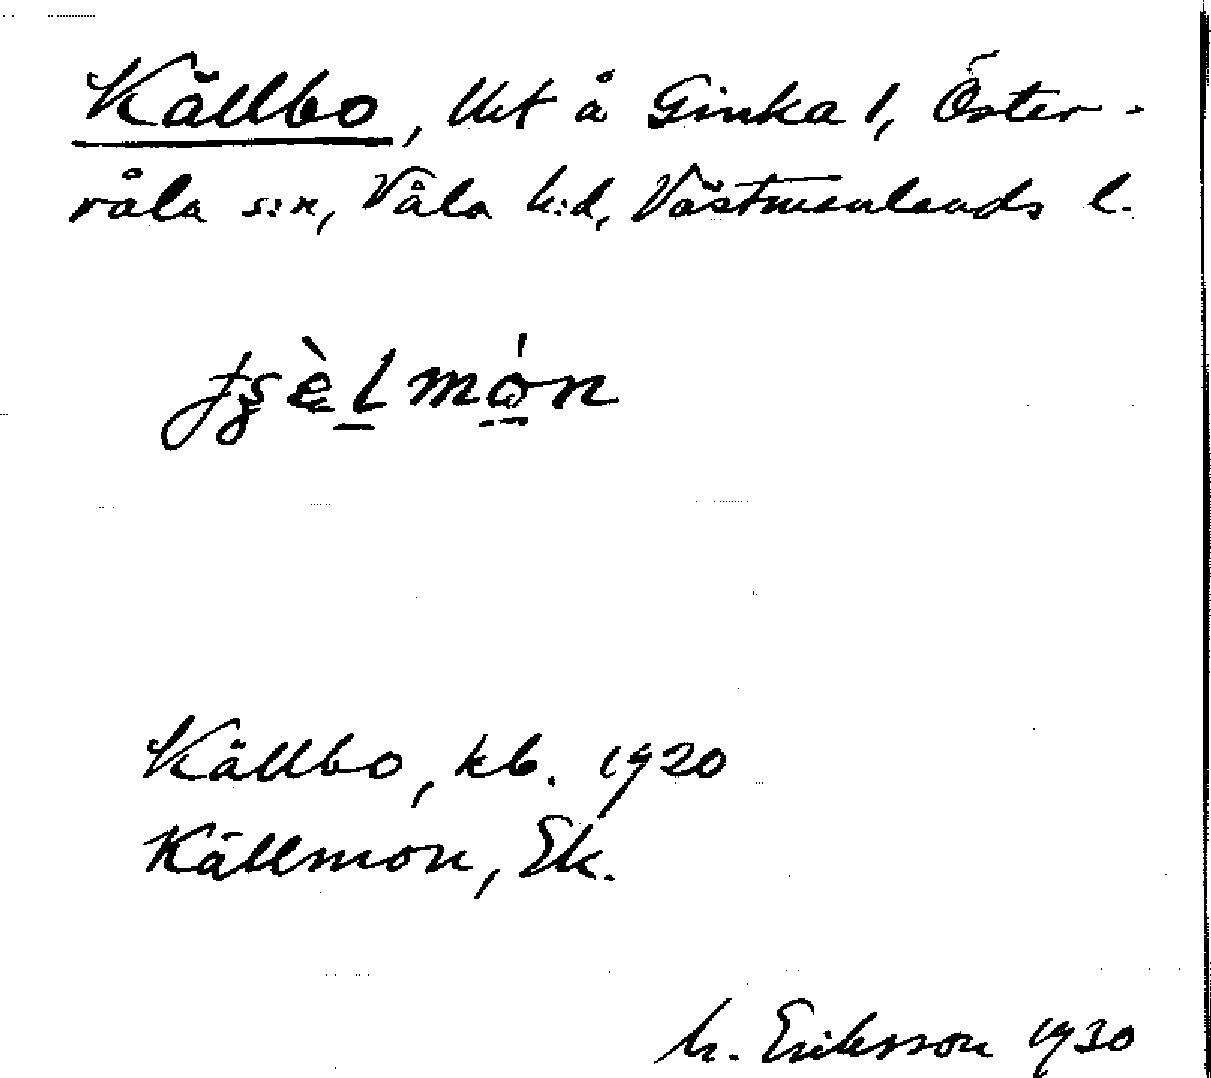 Källbo, Uet å Ginka 1, Öster-
våla s:n, Våla h:d, Västmanlands l.
Källbo, kb. 1920
Källmon, Ek.
M. Eriksson 1930